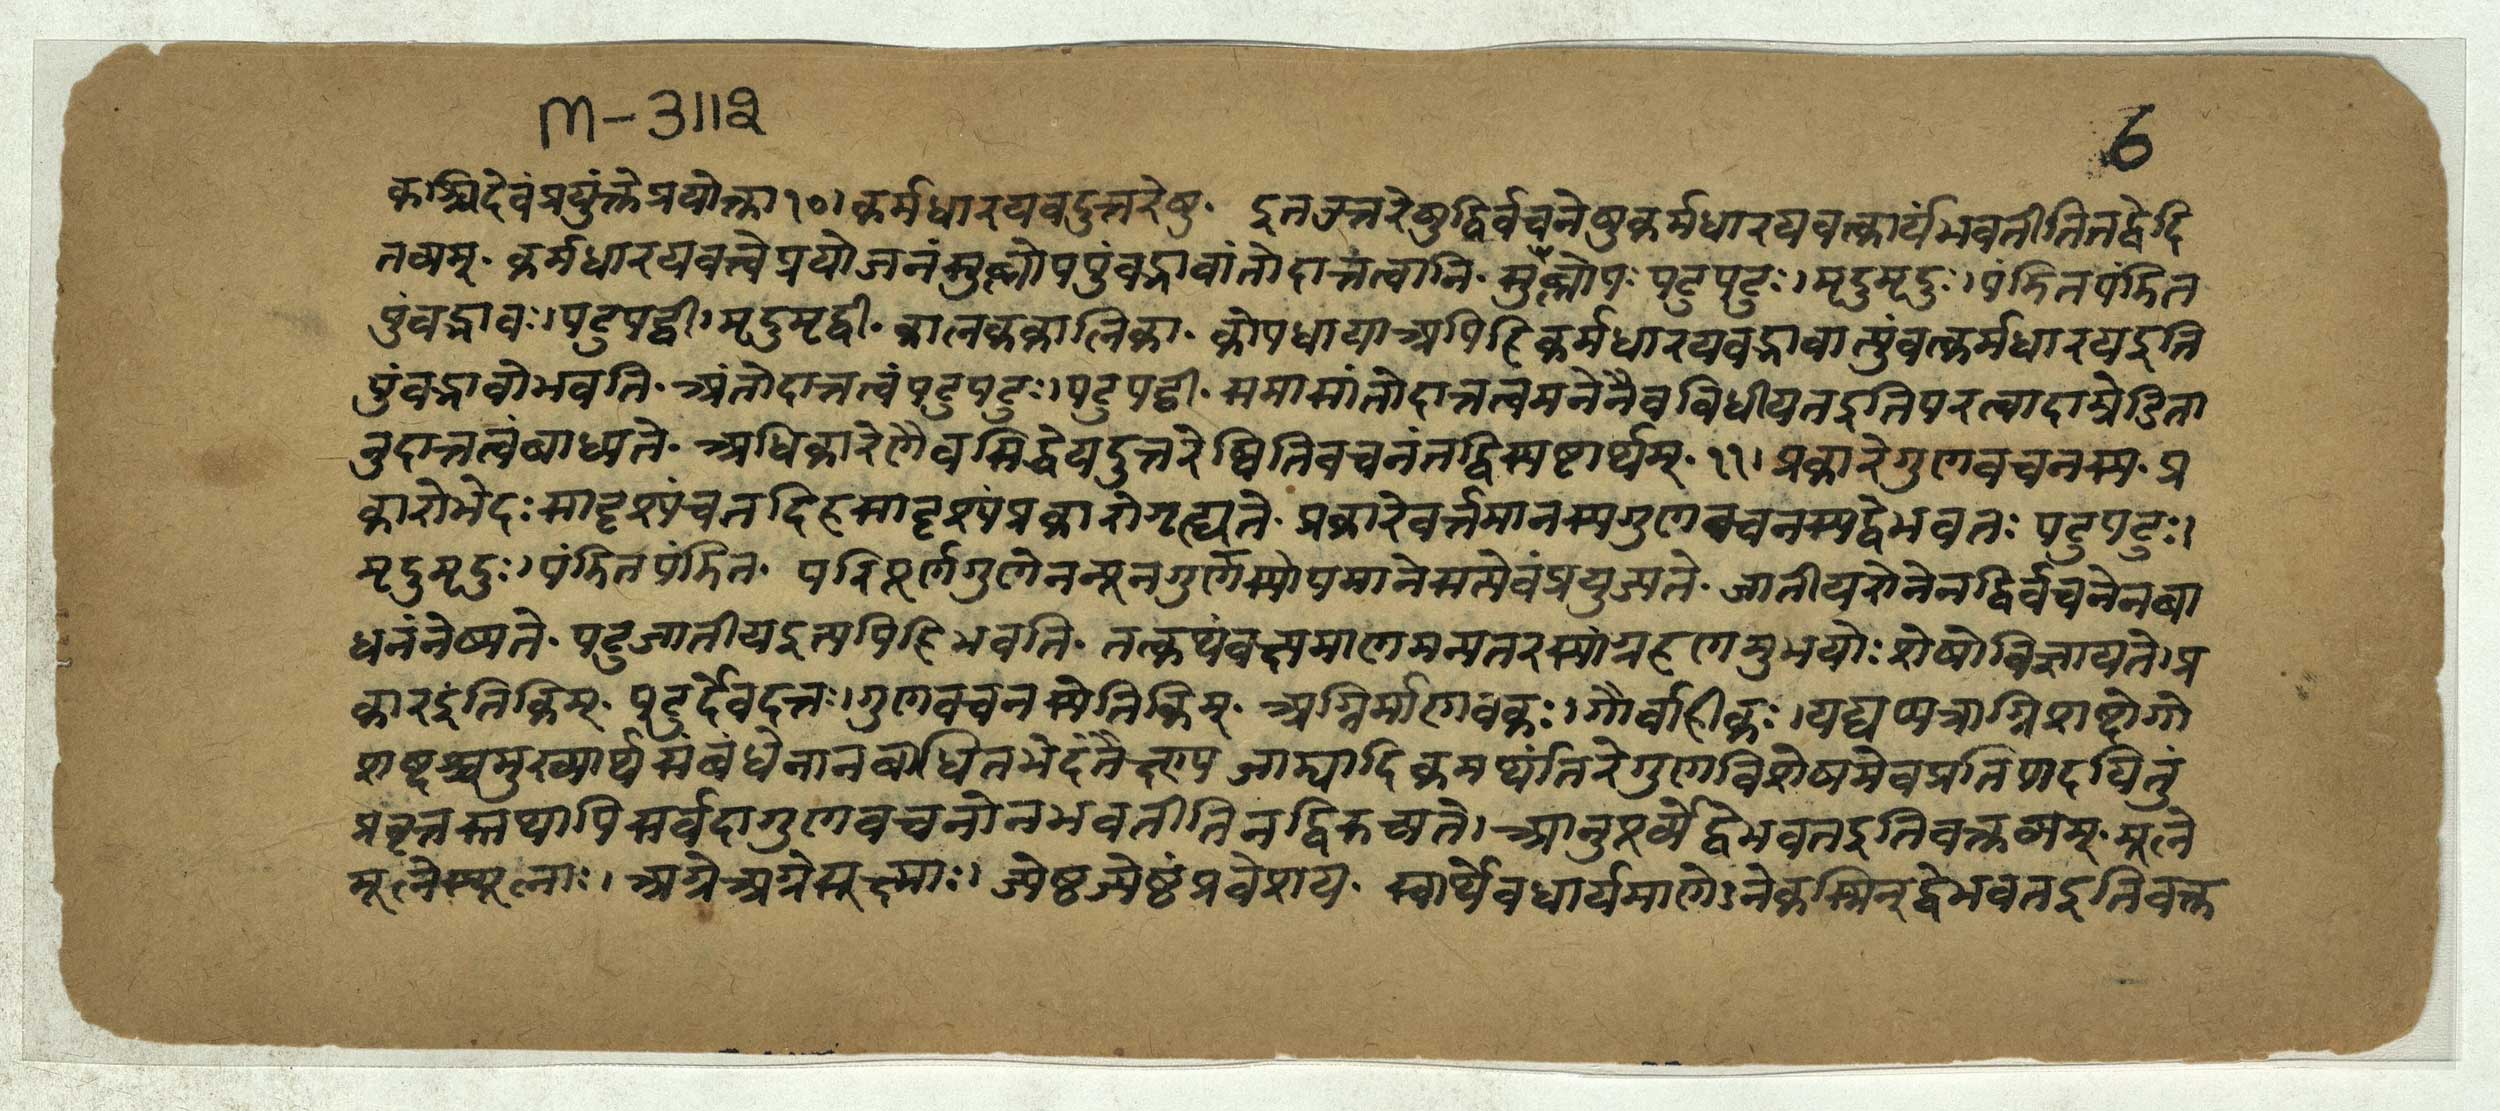 m-3112
6
कश्चिदेवंप्रयुंक्तेप्रयोक्ता१०। कर्मधारयवदुत्तरेषु॰ इतउत्तरेषुद्विर्वचनेषुकर्मधारयवत्कार्यंभवतीतितद्वेदि
तव्यम्॰ कर्मधारयवत्त्वेप्रयोजनंसुब्लोपपुंवद्भावांतोदात्तत्वानि॰ सुब्लोपः पटुपटुः। मृदुमृदुः। पंडितपंडित
पुंवद्भावः। पटुपट्वी। मृदुमृद्वी॰ कालककालिका॰ कोपधायाअपिहिकर्मधारयवद्भावात्पुंवत्कर्मधारयइति
पुंवद्भावोभवति॰ अंतोदात्तत्वंपटुपटुः। पटुपट्वी॰ समासांतोदात्तत्वमनेनैवविधीयतइतिपरत्वादाम्रेडिता
नुदात्तत्वंबाध्यते॰ अधिकारेणैवसिद्धेयदुत्तरेष्वितिवचनंतद्विस्पष्टार्थम्॰ ११। प्रकारेगुणवचनस्य॰ प्र
कारोभेदः सादृश्यंचतदिहसादृश्यंप्रकारोगृह्यते॰ प्रकारेवर्त्तमानस्यगुणवचनस्यद्वेभवतः पटुपटुः।
मृदुमृदुः। पंडितपंडित॰ परिपूर्णगुणेनन्यूनगुणस्योपमानेसत्येवंप्रयुज्यते॰ जातीयरोनेनद्विर्वचनेनबा
धनंनेष्यते॰ पटुजातीयइत्यपिहिभवति॰ तत्कथंवक्ष्यमाणमन्यतरस्यांग्रहणमुभयोः शेषोविज्ञायते। प्र
कारइंतिकिम्॰ पटुर्देवदत्तः। गुणवचनस्येतिकिम्॰ अग्निर्माणवकः। गौर्वाहीकः। यद्यप्यत्राग्निशब्दोगो
शब्दश्चमुख्यार्थसंबंधेनानवाधितभेदंतैक्ष्ण्यजाड्यादिकमर्थांतरेगुणविशेषमेवप्रतिपादयितुं
प्रवृत्तस्तथापिसर्वदागुणवचनोनभवतीतिनद्विरुच्यते। आनुपूर्व्येद्वेभवतइतिवक्तव्यम्॰ मूले
मूलेस्थूलाः। अग्रेअग्रेसूक्ष्माः। ज्येष्ठंज्येष्ठंप्रवेशय॰ स्वार्थेवधार्यमाणेऽनेकस्मिन्द्वेभवतइतिवक्त